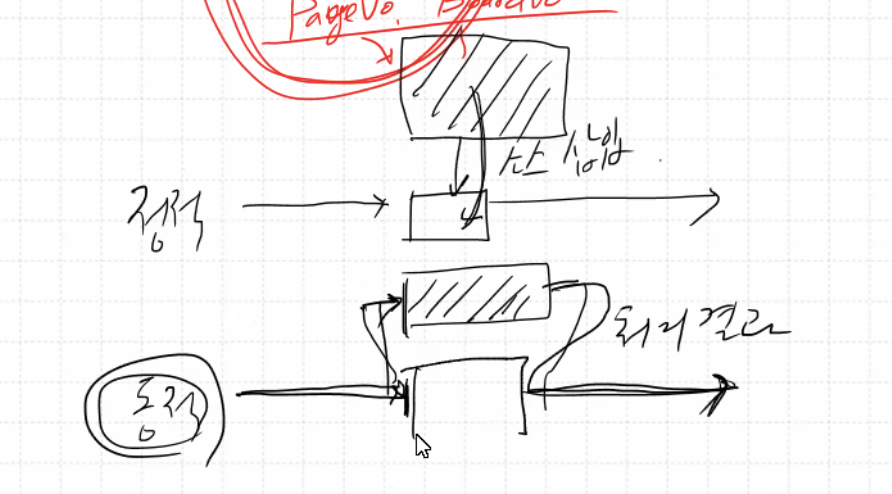 PageVo. BoardVo
소스 삽입
정적
처리결과
동적